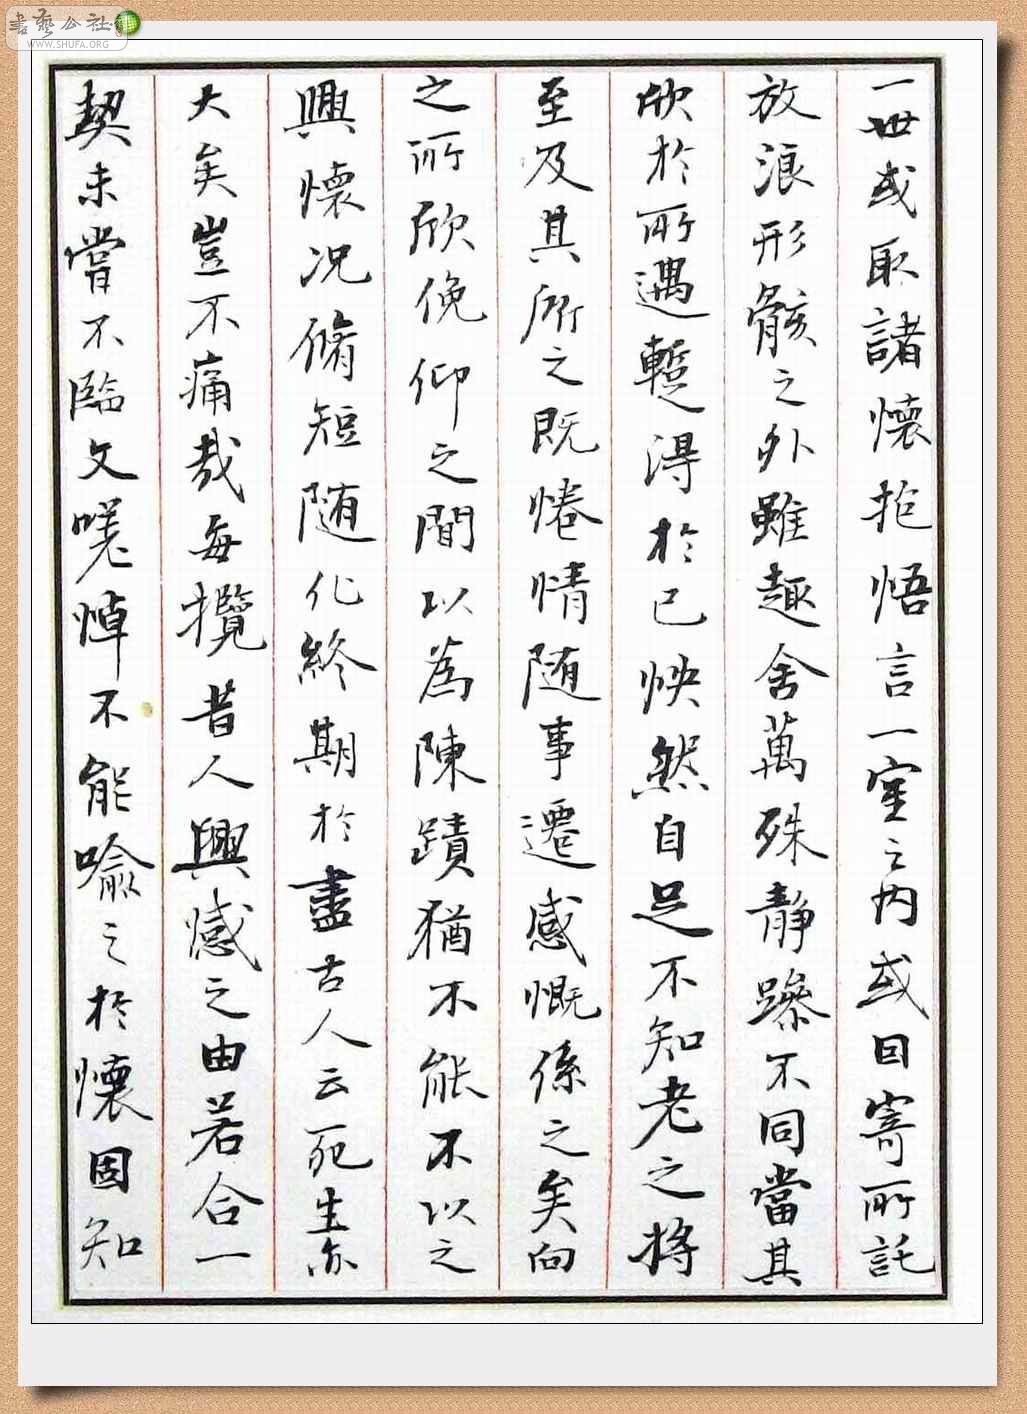 書藝公社
WWW.SHUFA.ORG
一世或取諸懷抱悟言一室之內或因寄所託
放浪形骸之外雖趣舍萬殊靜躁不同當其
欣於所遇暫得於己怏然自足不知老之將
至及其所之既惓情隨事遷感慨係之矣向
之所欣俛仰之間以為陳蹟猶不能不以之
興懷況脩短隨化終期於盡古人云死生亦
大矣豈不痛哉每攬昔人興感之由若合一
契未嘗不臨文嗟悼不能喻之於懷固知